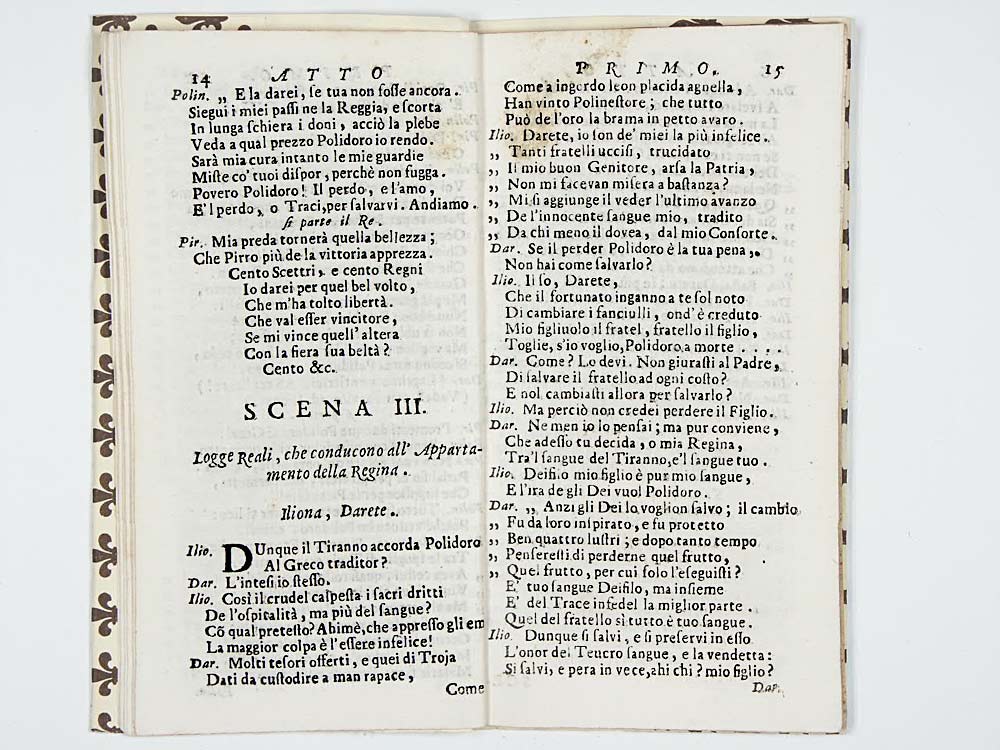 14 ATTO
Polin. „ E la darei, ſe tua non foſſe ancora.
Siegui i miei paſſi ne la Reggia, e ſcorta
In lunga ſchiera i doni, acciò la plebe
Veda a qual prezzo Polidoro io rendo.
Sarà mia cura intanto le mie guardie
Miſte co' tuoi diſpor, perchè non fugga.
Povero Polidoro! Il perdo, e l'amo,
E'l perdo, o Traci, per ſalvarvi. Andiamo.
ſi parte il Re.
Pir. Mia preda tornerà quella bellezza;
Che Pirro più de la vittoria apprezza.
Cento Scettri, e cento Regni
Io darei per quel bel volto,
Che m'ha tolto libertà.
Che val eſſer vincitore,
Se mi vince quell' altera
Con la fiera ſua beltà?
Cento &c.
SCENA III.
Logge Reali, che conducono all' Apparta-
mento della Regina.
Iliona, Darete.
Ilio. DUnque il Tiranno accorda Polidoro
Al Greco traditor?
Dar. L'inteſi io ſteſſo.
Ilio. Così il crudel calpeſta i ſacri dritti
De l'oſpitalità, ma più del ſangue?
Cõ qual preteſto? Ahimè, che appreſſo gli em
La maggior colpa è l'eſſere infelice!
Dar. Molti teſori offerti, e quei di Troja
Dati da cuſtodire a man rapace,
Come
PRIMO. 15
Come a ingordo leon placida agnella,
Han vinto Polineſtore; che tutto
Può de l'oro la brama in petto avaro.
Ilio. Darete, io ſon de' miei la più infelice.
„ Tanti fratelli ucciſi, trucidato
„ Il mio buon Genitore, arſa la Patria,
„ Non mi facevan miſera a baſtanza?
„ Mi ſi aggiunge il veder l'ultimo avanzo
„ De l'innocente ſangue mio, tradito
„ Da chi meno il dovea, dal mio Conſorte.
Dar. Se il perder Polidoro è la tua pena,
Non hai come ſalvarlo?
Ilio. Il ſo, Darete,
Che il fortunato inganno a te ſol noto
Di cambiare i fanciulli, ond' è creduto
Mio figliuolo il fratel, fratello il figlio,
Toglie, s'io voglio, Polidoro a morte . . . .
Dar. Come? Lo devi. Non giuraſti al Padre,
Di ſalvare il fratello ad ogni coſto?
E nol cambiaſti allora per ſalvarlo?
Ilio. Ma perciò non credei perdere il Figlio.
Dar. Ne men io lo penſai; ma pur conviene,
Che adeſſo tu decida, o mia Regina,
Tra'l ſangue del Tiranno, e'l ſangue tuo.
Ilio. Deifilo mio figlio è pur mio ſangue,
E l'ira de gli Dei vuol Polidoro.
Dar. „ Anzi gli Dei lo voglion ſalvo; il cambio
„ Fu da loro inſpirato, e fu protetto
„ Ben quattro luſtri; e dopo tanto tempo
„ Penſereſti di perderne quel frutto,
„ Quel frutto, per cui ſolo l'eſeguiſti?
E' tuo ſangue Deifilo, ma inſieme
E' del Trace infedel la miglior parte.
Quel del fratello sì tutto è tuo ſangue.
Ilio. Dunque ſi ſalvi, e ſi preſervi in eſſo
L'onor del Teucro ſangue, e la vendetta:
Si ſalvi, e pera in vece, ahi chi? mio figlio?
Dar.